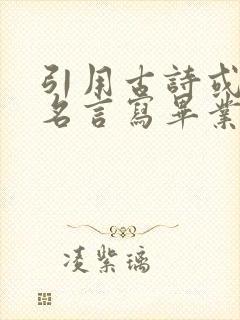 引用古詩或
名言寫畢業
凌紫璃